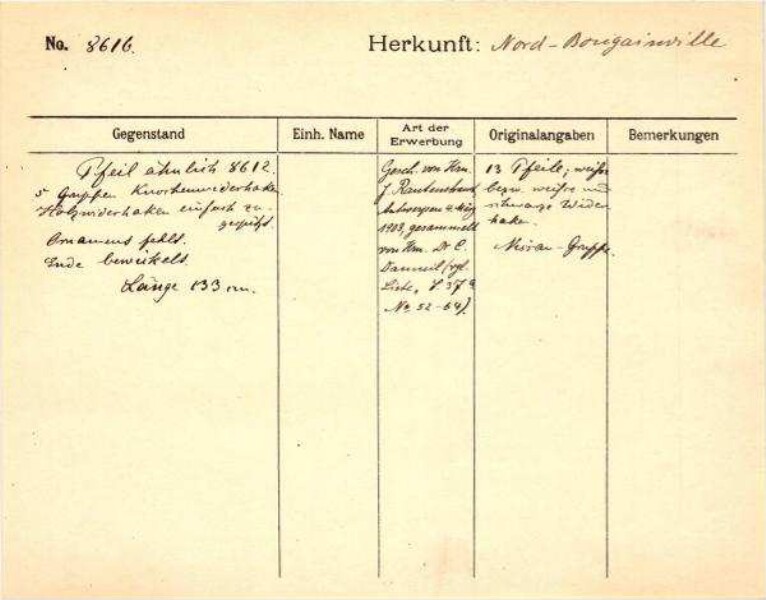 No. 8616. Herkunft: Nord-Bougainville
Gegenstand
Einh. Name
Art der
Erwerbung
Originalangaben
Bemerkungen
Pfeil ähnlich 8612.
5 Gruppen Knochenwiderhaken
Holzwiderhaken einfach zu-
gespitzt.
Ornament fehlt.
Ende bewickelt.
Länge 133 cm.
Gesch. von Hrn.
J. Rautenstrauch
Antwerpen
1903, gesammelt
von Hrn. Dr C.
Danneil (vgl.
Liste, S. 37a
No 52-64).
13 Pfeile, weisse
bezw. weisse und
schwarze Wider
haken.
Nissan-Gruppe.